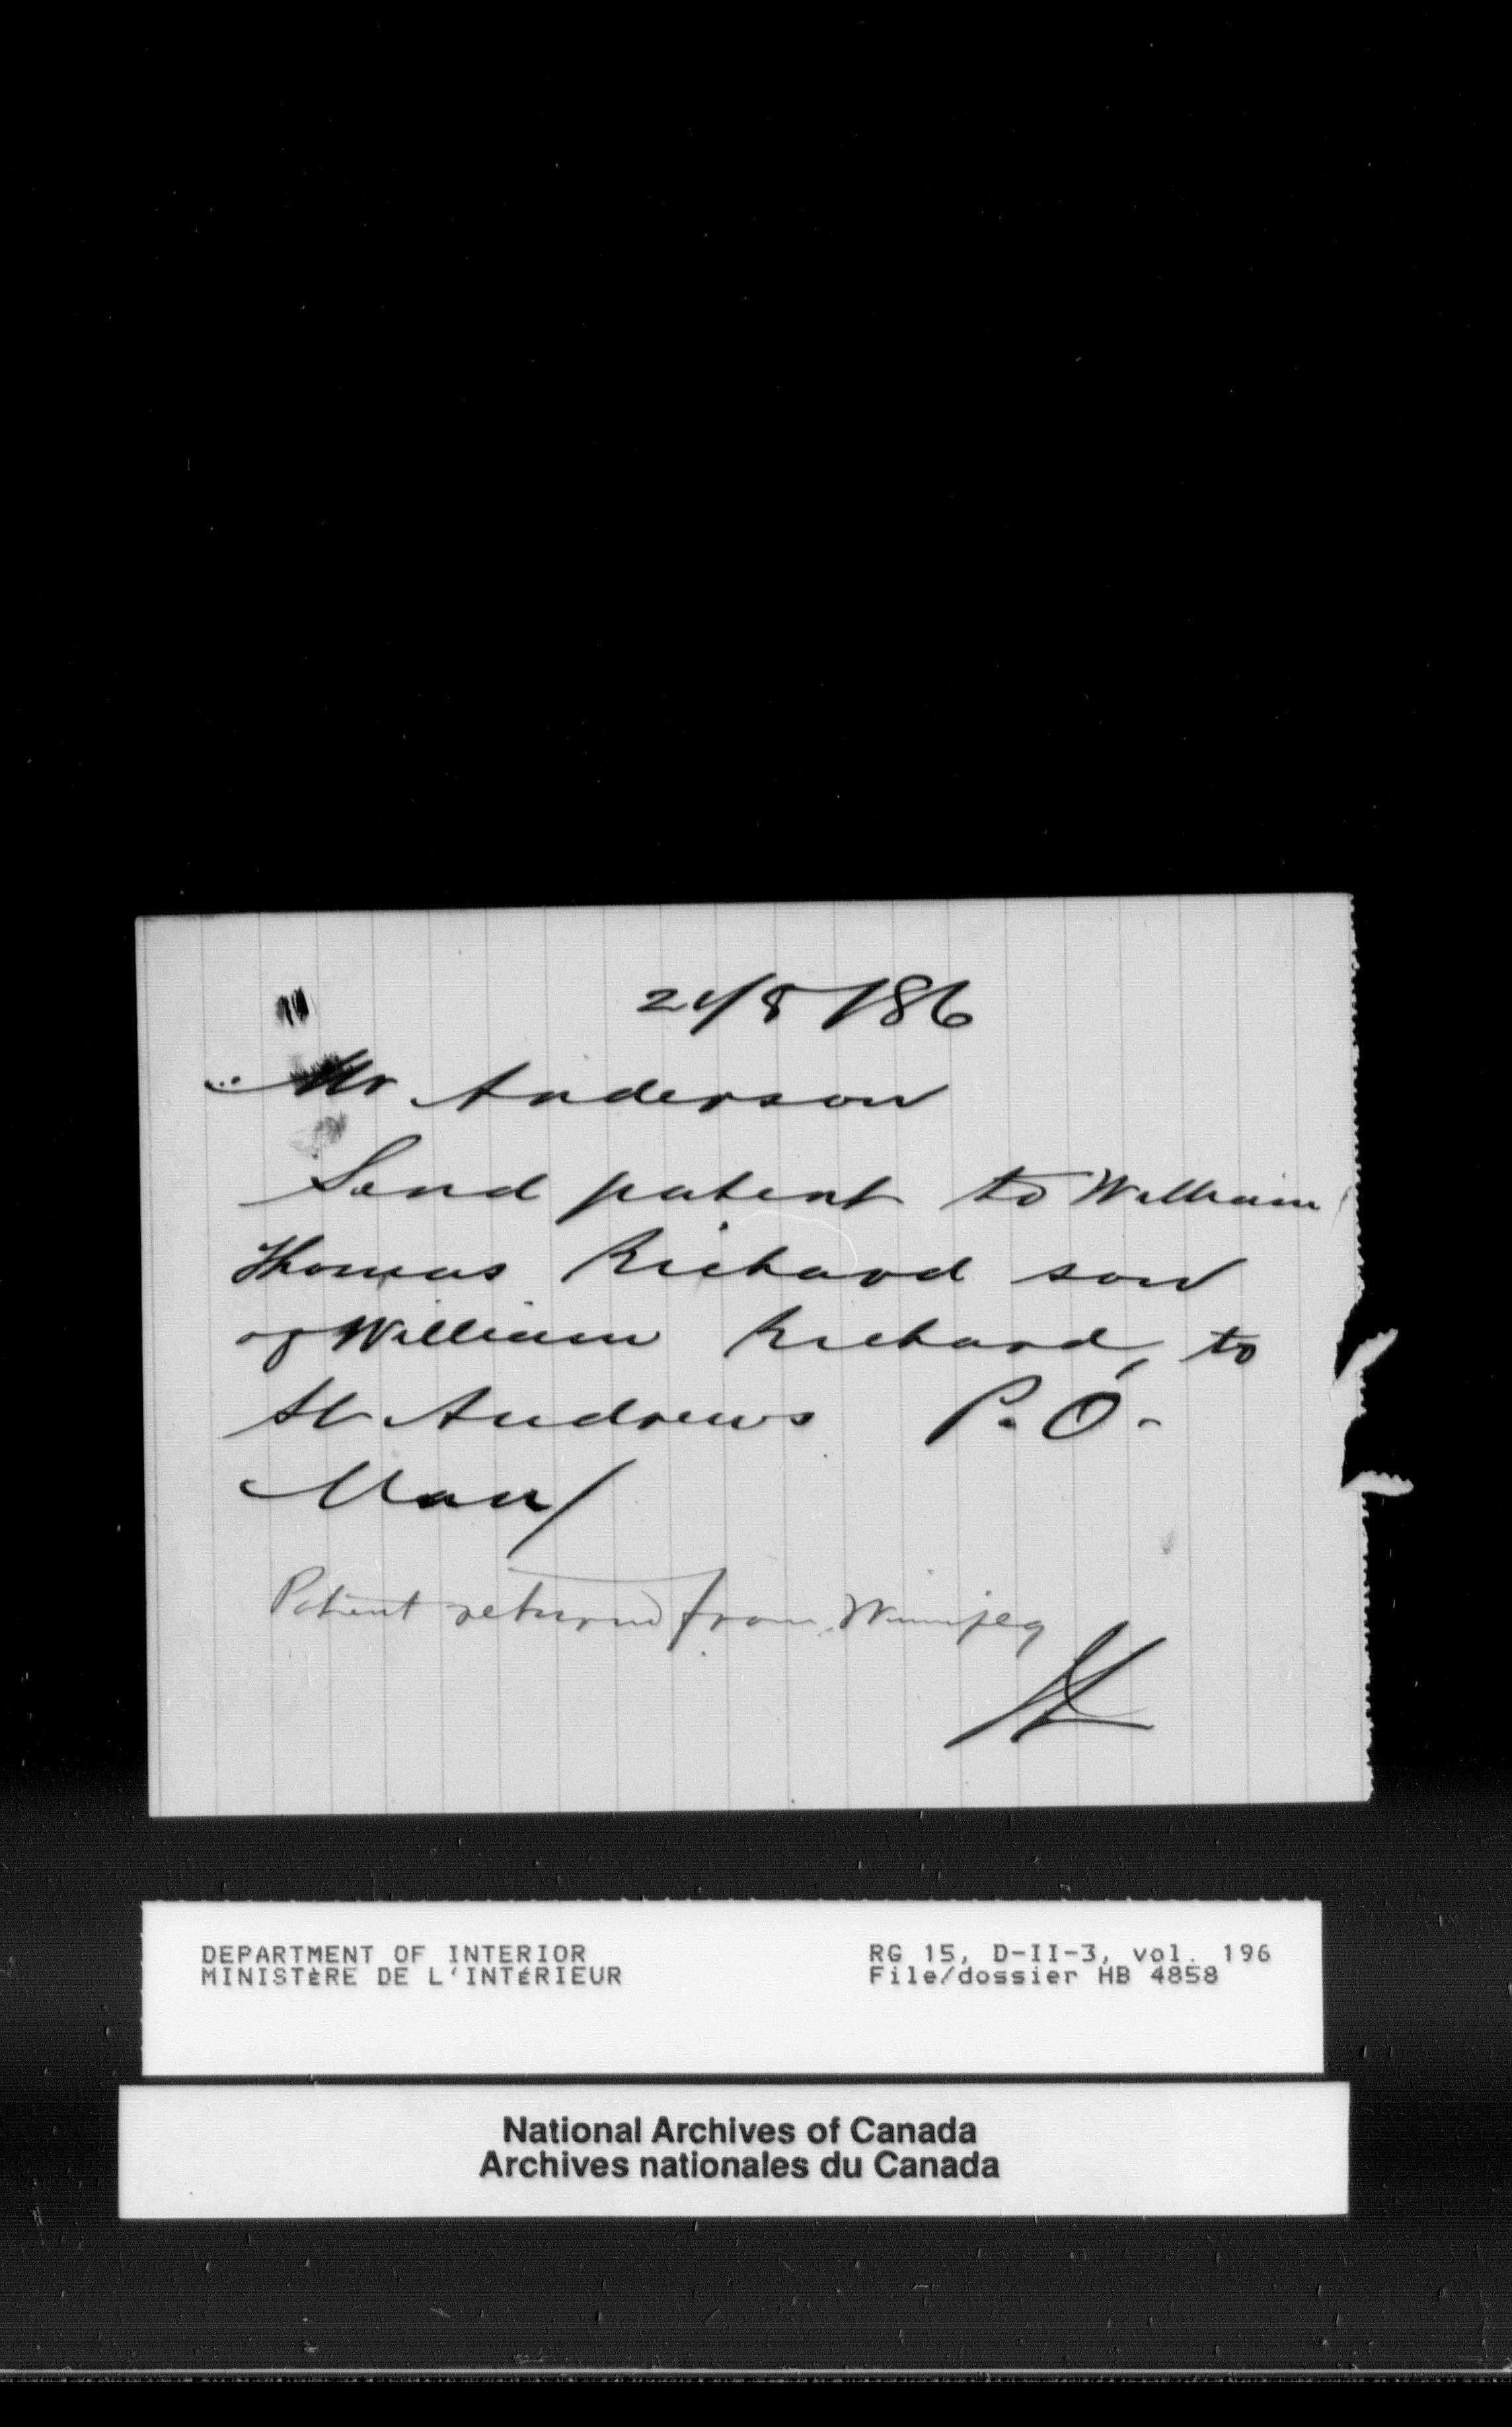 24/8/86
Mr Anderson
Send patent to William
Thomas Richard son
of William Richard, to
St Andrews P.O.
Man/
Patent returned from Winnipeg
DEPARTMENT OF INTERIOR
MINISTÈRE DE L'INTÉRIEUR
RG 15, D-II-3, vol. 196
File/dossier HB 4858
National Archives of Canada
Archives nationales du Canada